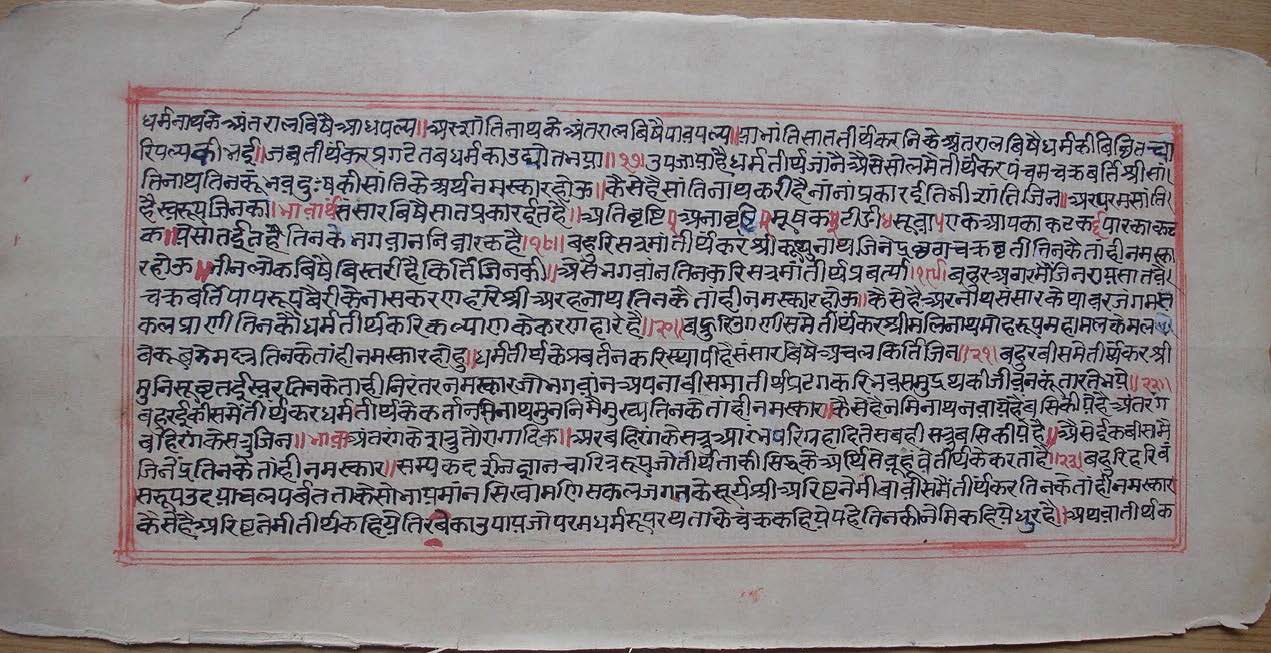 धर्मनाथके अंतरालबिषै आधपल्य॥ अरशांतिनाथके अंतरालबिषै पावपल्य॥ या भांति सात तीर्थंकरनिके अंतरालबिषै धर्मकी विछित च्या
रिपल्यकी भई॥ जब तीर्थंकर प्रगटे तब धर्मका उद्योत भया॥१७॥ उपजाया है धर्मतीर्थ जांनै औसे सोलमे तीर्थंकर पंचम चक्रबर्ति श्री सां
तिनाथ तिनकूं नव दुःषकी सांतिके अर्थ नमस्कार होऊ॥ कैसे है सांतिनाथ करी है नांनां प्रकार ईतिनी शांति जिन॥ अर परम सांति
है स्वरूप जिनका॥ भावार्थ संसारबिषै सात प्रकार ईत है॥ अतिवृष्टि १ अनावृष्टि २ मूषक ३ टीडी ४ सूवा ५ एक आपका कटक ६ पारका कट
क॥ ये सात ईत है तिनके भगवान निवारक है॥१८॥ बहुरि सत्रमां तीर्थंकर श्री कूंथुनाथ जिनेन्द्र चक्रवृती तिनकै तांही नमस्का
र होऊ॥ तीन लोकबिषै बिस्तरी है किर्ति जिनकी॥ औसे भगवांन तिनकरि सत्रमां तीर्थ प्रबर्त्या॥१९॥ बहुर अगरमां जिनराय सातवे
चक्रबर्ति पापरूप बैरीके नासकरणहारे श्री अरहनाथ तिनकै तांही नमस्कार होऊ॥ कैसे है अरनाथ संसारके थावर जंगम स
कल प्राणी तिनकौ धर्मतीर्थकरि कल्याणके करणहार है॥२०॥ बहुरि उगणीसमे तीर्थंकर श्री मलिनाथ मोहरूप महामलके मल
बेकूं मल्ल तिनके तांही नमस्कार होहु॥ धर्मतीर्थके प्रबर्तनकरि स्थापी है संसारबिषै अचल किर्ति जिन॥२१॥ बहुर बीसमे तीर्थंकर श्री
मुनिसूब्रत ईस्वर तिनकै तांही निरंतर नमस्कार जो भगवांन अपना वीसमा तीर्थ प्रटगकरि भवसमुद्रथकी जीवनकूं तारते भये॥२२॥
बहुर इकीसमे तीर्थंकर धर्मतीर्थके कर्ता नमिनाथ मुननिमै मुख्य तिनकै तांही नमस्कार॥ कैसे है नमिनाथ नवाये है बसि कीये है अंतरंग
बहिरंगके सत्रु जिन॥ भावा अंतरंगके शत्रु तौ रागादिक॥ अर बहिरंगके सत्रु आरंभ परिग्रहादि ते सबही सत्रु बसि कीये है॥ औसे ईकबीसमे
जिनेंद्र तिनकै तांही नमस्कार॥ सम्यकदर्शन ज्ञान चारित्ररूप जो तीर्थ ताकी सिद्धके अर्थि सेवूहूं वे तीर्थके करता है॥२३॥ बहुरि हरिवं
सरूप उदयाचल पर्बत ताकै सोभायमांन सिखामणि सकल जगतके सूर्य श्री अरिष्टनेमी बावीसमै तीर्थंकर तिनकै तांही नमस्कार
कैसे है अरिष्टनेमी तीर्थ कहिये तिरबेका उपाय जो परमधर्मरूप रथ ताके चक्र कहिये पहे तिनकी नेमि कहिये धुर है॥ अथवा तीर्थक